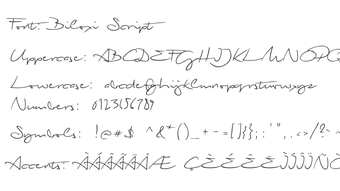 Font: Biloxi Script
Uppercase: ABCDEFGHIJKLMNOPQ
Lowercase: abcdefghijklmnopqrstuvwxyz
Numbers: 0123456789
Symbols: !@#$ ^&*()_+-=[]{};:'",.<>/?~
Accents: ÀÁÂÃÄÅÆ ÇÈÉÊËÌÍÎÏÑÒ